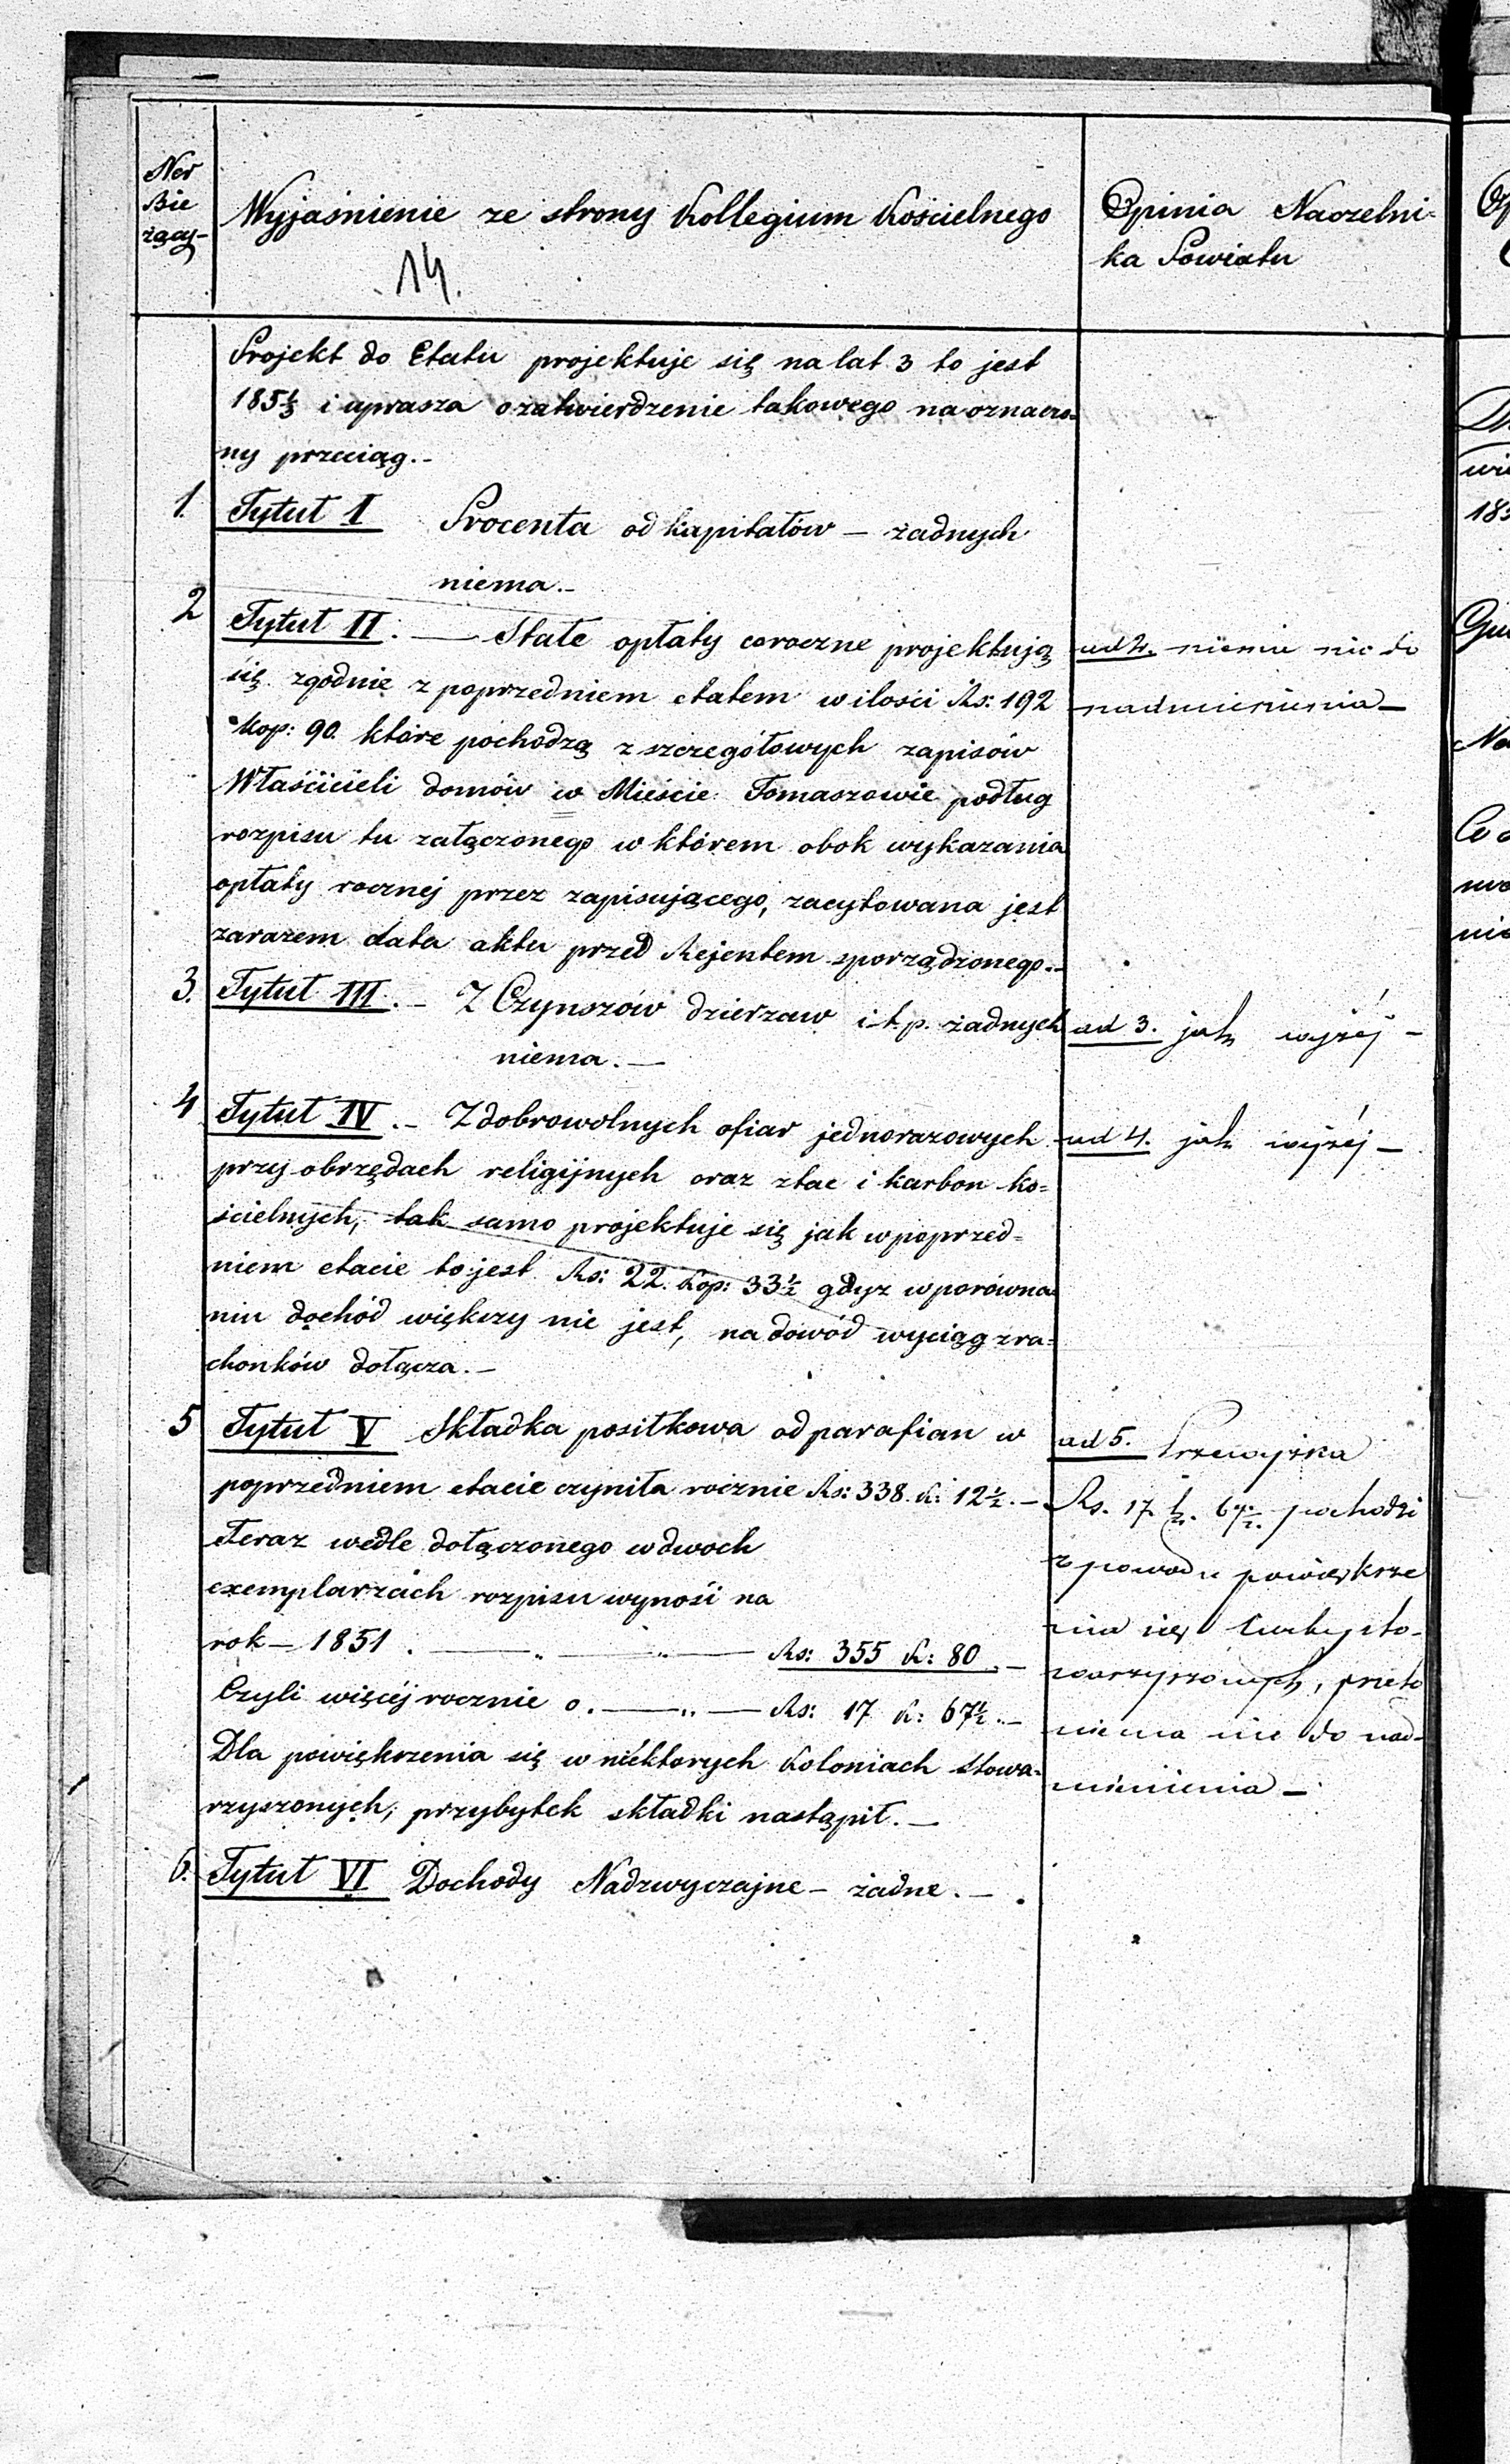 Ner
Bie
żący-
Wyjaśnienie ze strony Kollegium Kościelnego
14.
Opinia Naczelni-
ka Powiatu
Projekt do Etatu projektuje się na lat 3 to jest
185 1/3 i uprasza o zatwierdzenie takowego na oznaczo-
ny przeciąg.-
1. Tytuł I Procenta od kapitałów — żadnych
niema.-
2 Tytuł II. — Stałe opłaty coroczne projektują
się zgodnie z poprzedniem etatem w ilości Rs: 192
Kop: 90. które pochodzą z szczegółowych zapisów
Właścicieli domów w Mieście Tomaszowie podług
rozpisu tu załączonego w którem obok wykazania
opłaty rocznej przez zapisującego, zacytowana jest
zarazem data aktu przed Rejentem sporządzonego.-
ad 2. niema nic do
nadmienienia —
3. Tytuł III. - Z Czynszów dzierzaw i t.p. żadnych
niema. —
ad 3. jak wyżéj -
4 Tytuł IV. - Z dobrowolnych ofiar jednorazowych
przy obrzędach religijnych oraz z tac i karbon ko=
ścielnych, tak samo projektuje się jak w poprzed=
niem etacie to jest Rs: 22. Kop: 33 1/2 gdyz w porówna=
niu dochód większy nie jest, na dowód wyciąg z ra=
chonków dołącza. —
ad 4. jak wyżéj —
5 Tytuł V Składka positkowa od parafian w
poprzedniem etacie czyniła rocznie Rs: 338. K: 12 1/2. —
Teraz wedle dołączonego w dwoch
exemplarzach rozpisu wynosi na
rok — 1851 . — „ — „ — Rs: 355 K: 80 . —
Czyli więcéj rocznie o . — „ — Rs: 17 K: 67 1/2. —
Dla powiększenia się w niéktorych Koloniach stowa-
rzyszonych, przybytek składki nastąpił. —
ad 5. Przewyżka
Rs. 17 k. 67 1/2. pochodzi
z powodu powiększe
nia się sto-
warzyszonych, przeto
niema nic do nad-
mienienia —
6. Tytuł VI Dochody Nadzwyczajne — żadne. —